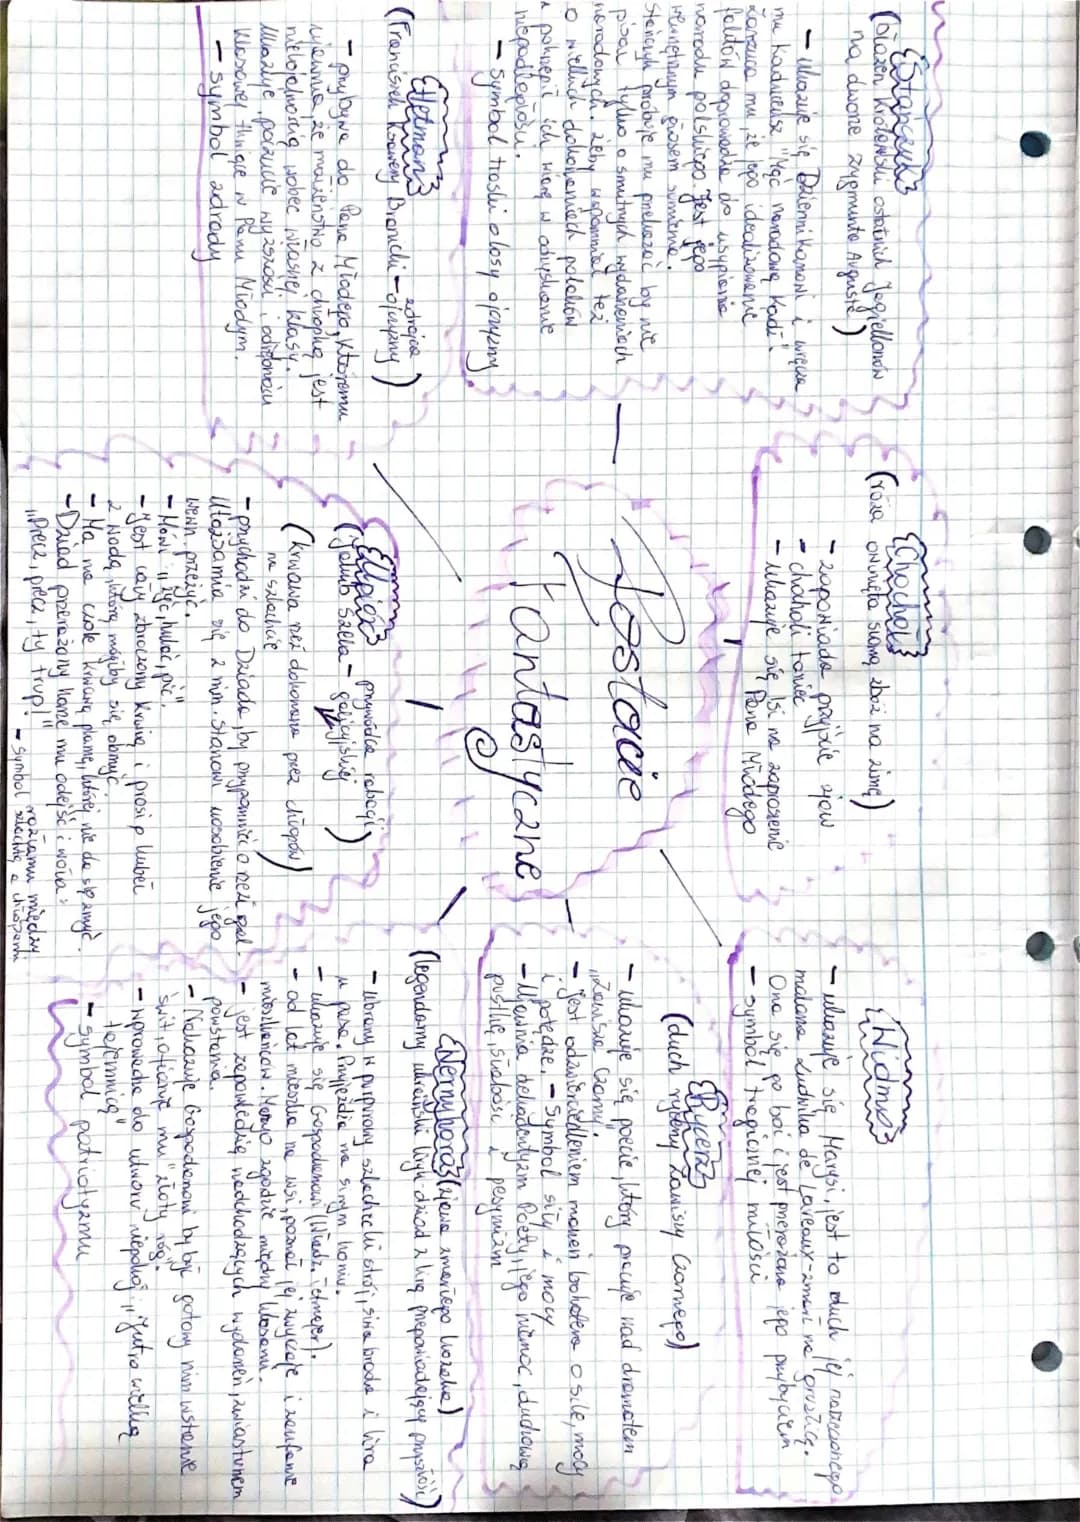 Postacie
Fantastyczne
{Stańczyk}
(błazen królewski ostatnich Jagiellonów
na dworze Zygmunta Auguste)
- ukazuje się Dziennikarzowi i wręcza
mu kaduceusz "Mąć narodową kadź".
Zarzuca mu, że jego idealizowanie
faktów doprowadza do usypiania
narodu polskiego. Jest jego
wewnętrznym głosem sumienia.
Stańczyk próbuje mu przekazać by nie
pisał tylko o smutnych wydarzeniach
narodowych. żeby wspomniał też
o wielkich dokonaniach polaków
a pokrzepić ich wiarę w odzyskanie
niepodległości.
- symbol troski o losy ojczyzny
{Hetman}
(Franciszek Ksawery Branicki - zdrajca
ojczyzny)
- przybywa do Pana Młodego, któremu
ujawnia, że małżeństwo z chłopką jest
niełojalnością wobec własnej klasy.
Ukazuje poczucie wyższości i odrębności
klasowej tkwiące w Panu Młodym.
- symbol zdrady
{Chochoł}
(róża owinięta słomą zbóż na zimę)
- zapowiada przyjście zjaw
- chocholi taniec
- ukazuje się Isi na zaproszenie
Pana Młodego
{Upiór}
(Jakub Szela - przywódca rabacji
galicyjskiej)
(krwawa rzeź dokonana przez chłopów
na szlachcie)
- przychodzi do Dziada, by przypomnieć o rzezi gal.
Utożsamia się z nim. Stanowi uosobienie jego
wewn. przeżyć.
- Mówi: "żyć, hulać, pić".
- Jest cały zbroczony krwią i prosi o kubeł
z wodą, którą mógłby się obmyć.
- Ma na czole krwawą plamę, której nie da się zmyć.
- Dziad przerażony każe mu odejść i woła:
"Precz, precz, ty trup!"
- symbol rozłamu między
szlachtą a chłopami
{Widmo}
- ukazuje się Marysi, jest to duch jej narzeczonego
malarza Ludwika de Laveaux - zmarł na gruźlicę.
Ona się go boi i jest przerażona jego przybyciem
- symbol tragicznej miłości
{Rycerz}
(duch rycerzy Zawiszy Czarnego)
- ukazuje się poecie, który pracuje nad dramatem
"Zawisza Czarny".
- Jest odzwierciedleniem marzeń bohatera o sile, mocy
i potędze. - Symbol siły i mocy
- Ujawnia dekadentyzm Poety, jego niemoc, duchową
pustkę, słabość i pesymizm
{Wernyhora} (zjawa zmarłego kozaka)
(legendarny ukraiński lirnik - dziad z lirą przepowiadający przyszłość)
- ubrany w purpurowy szlachecki strój, siwa broda i lira
u pasa. Przyjeżdża na siwym koniu.
- ukazuje się Gospodarzowi (Włodz. Tetmajer).
- od lat mieszka na wsi, poznał jej zwyczaje i zaufanie
mieszkańców. Marzy o zgodzie między klasami.
- jest zapowiedzią nadchodzących wydarzeń, zwiastunem
powstania.
- Nakazuje Gospodarzowi by być gotowy nim wstanie
świt, ofiaruje mu "złoty róg".
- wprowadza do utworu niepokój "jutro wielką
tajemnicą"
- symbol patriotyzmu